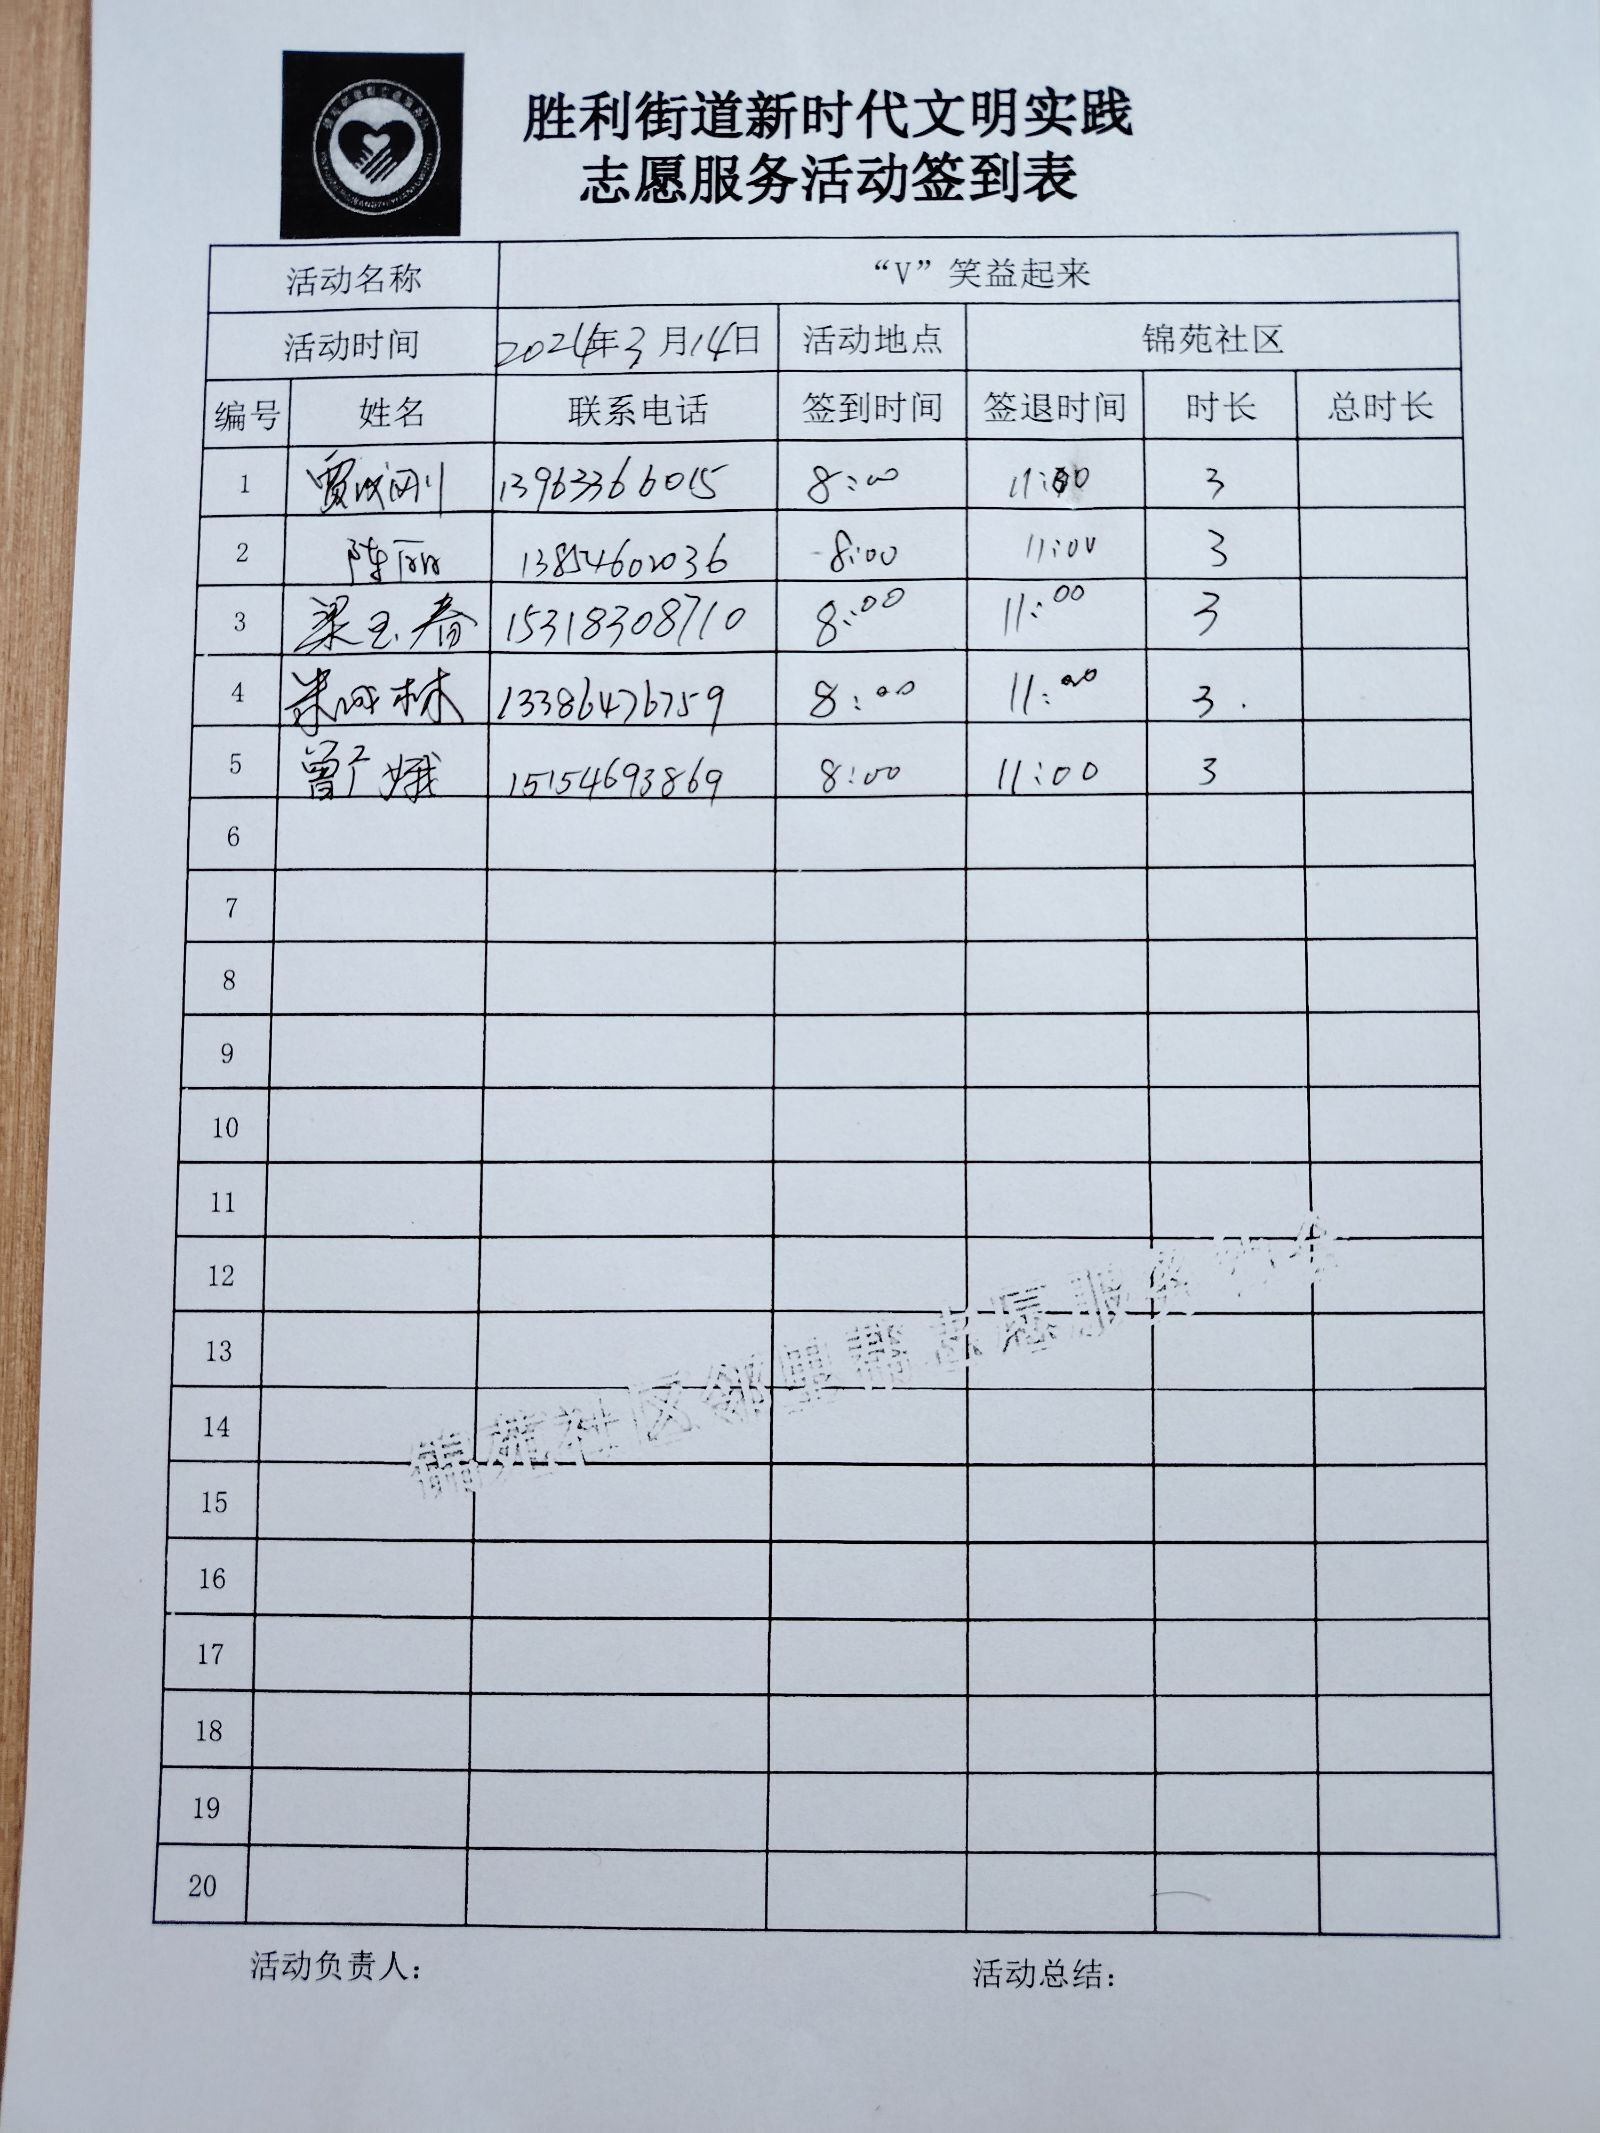 胜利街道新时代文明实践
志愿服务活动签到表
活动名称 “V”笑益起来
活动时间 2024年3月14日 活动地点 锦苑社区
编号 姓名 联系电话 签到时间 签退时间 时长 总时长
1 贾成刚 13963366015 8:00 11:00 3
2 陈丽 13854602036 8:00 11:00 3
3 梁玉春 15318308710 8:00 11:00 3
4 朱成林 13386476759 8:00 11:00 3.
5 曾广娥 15154693869 8:00 11:00 3
6
7
8
9
10
11
12
13
14
15
16
17
18
19
20
锦苑社区邻里帮志愿服务协会
活动负责人： 活动总结：